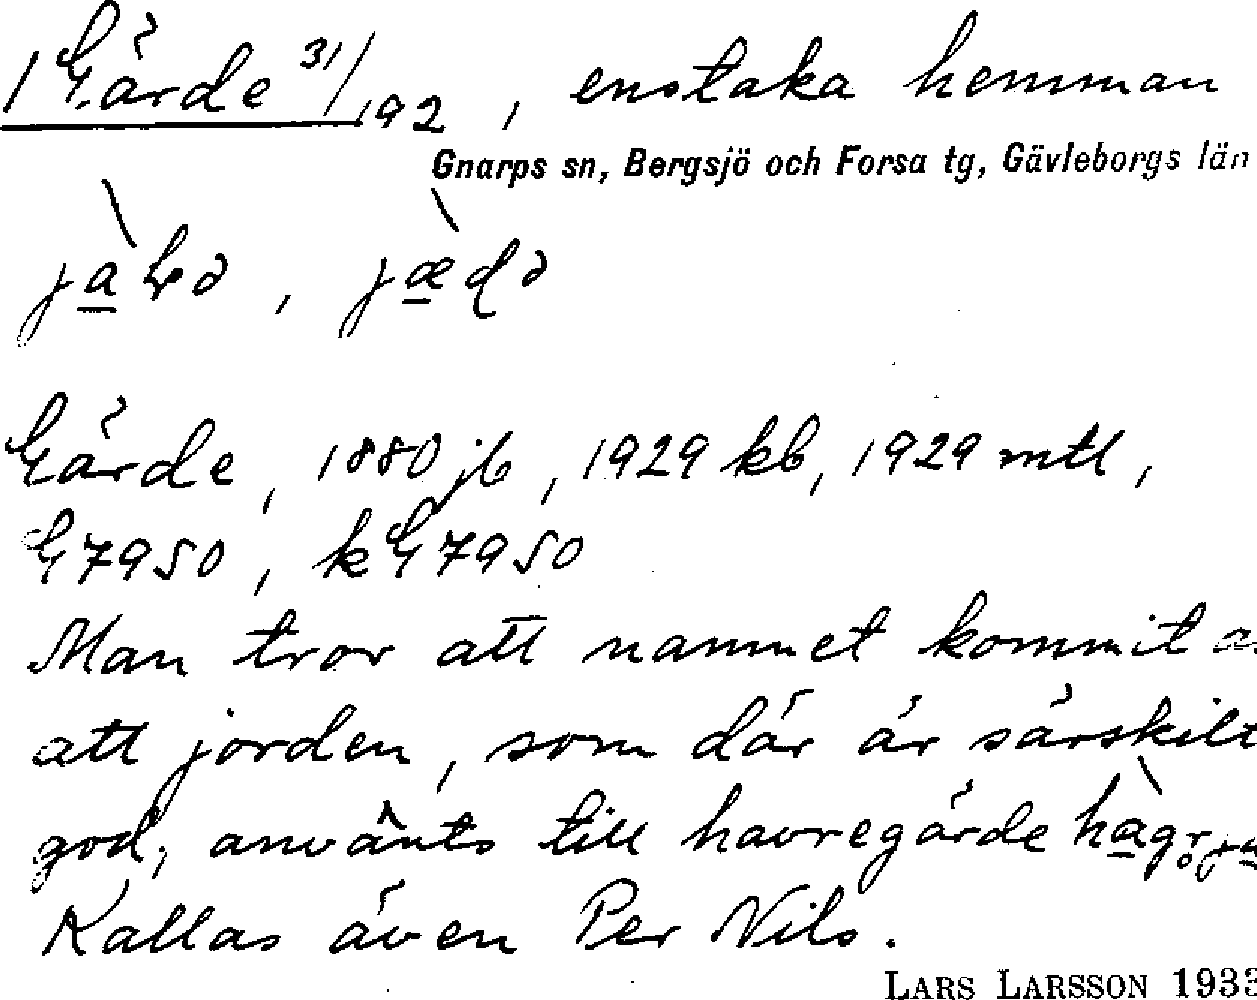 1 Gärde 31/192, enstaka hemman
Gnarps sn, Bergsjö och Forsa tg, Gävleborgs län
Gärde, 1880 jb, 1929 kb, 1929 mtl,
G7950, kG7950
Man tror att namnet kommit
att jorden, som där är särskilt
god, använts till havregärde
Kallas även Per Nils.
LARS LARSSON 1933